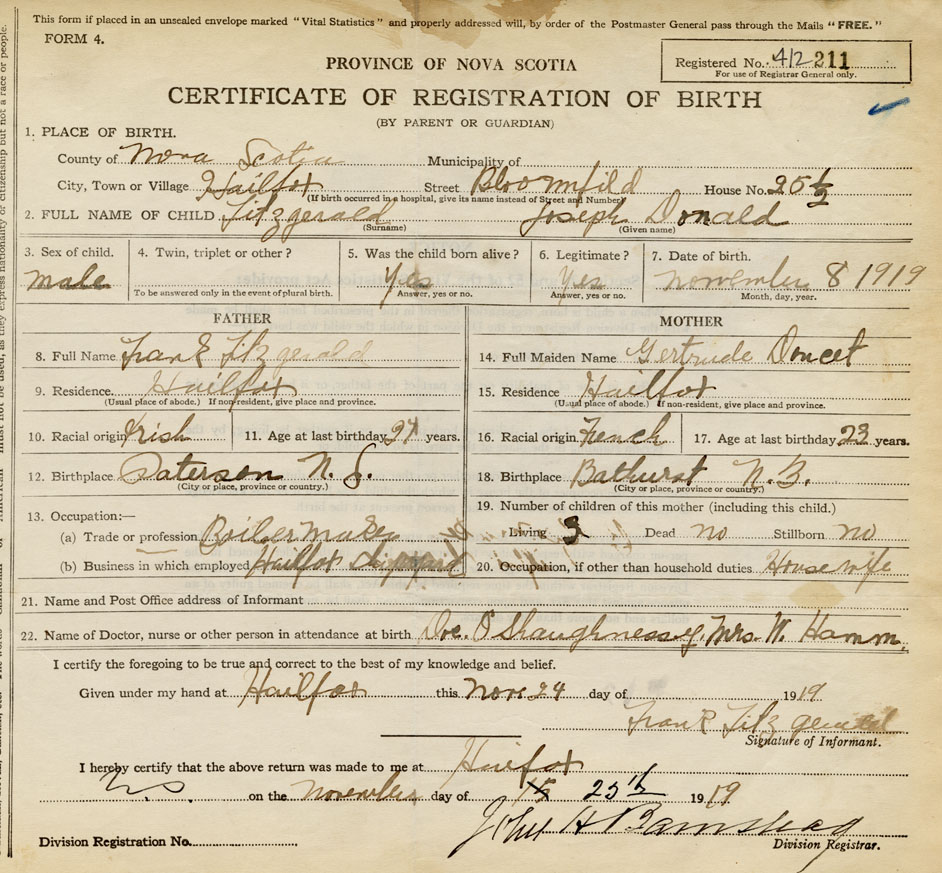 This form if placed in an unsealed envelope marked "Vital Statistics" and properly addressed will, by order of the Postmaster General pass through the Mails "FREE."
FORM 4.
PROVINCE OF NOVA SCOTIA
Registered No. 412 211
For use of Registrar General only.
CERTIFICATE OF REGISTRATION OF BIRTH
(BY PARENT OR GUARDIAN)
1. PLACE OF BIRTH.
County of Nova Scotia Municipality of
City, Town or Village Hailfox Street Bloomfild House No. 25½
(If birth occurred in a hospital, give its name instead of Street and Number)
2. FULL NAME OF CHILD Fitzgerald Joseph Donald
(Surname) (Given name)
3. Sex of child. 4. Twin, triplet or other? 5. Was the child born alive? 6. Legitimate? 7. Date of birth.
male Yes Yes november 8 1919
To be answered only in the event of plural birth. Answer, yes or no. Answer, yes or no. Month, day, year.
FATHER
8. Full Name Frank Fitzgerald
9. Residence Hailfox
(Usual place of abode.) If non-resident, give place and province.
10. Racial origin Irish 11. Age at last birthday years.
12. Birthplace Paterson N. J.
(City or place, province or country.)
13. Occupation:—
(a) Trade or profession Boiler maker
(b) Business in which employed Hailfox Shippard
MOTHER
14. Full Maiden Name Gertrude Doucet
15. Residence Hailfox
(Usual place of abode.) If non-resident, give place and province.
16. Racial origin French 17. Age at last birthday 23 years.
18. Birthplace Bathurst N.B.
(City or place, province or country.)
19. Number of children of this mother (including this child.)
Living 3 Dead no Stillborn no
20. Occupation, if other than household duties Housewife
21. Name and Post Office address of Informant
22. Name of Doctor, nurse or other person in attendance at birth Doc. O Shaughnessy. Mrs. W. Hamm.
I certify the foregoing to be true and correct to the best of my knowledge and belief.
Given under my hand at Hailfox this Nov. 24 day of 1919
Frank Fitzgerald
Signature of Informant.
I hereby certify that the above return was made to me at Haifox
N.S. on the November day of 25th 1919
John H Barnstead
Division Registration No. Division Registrar.